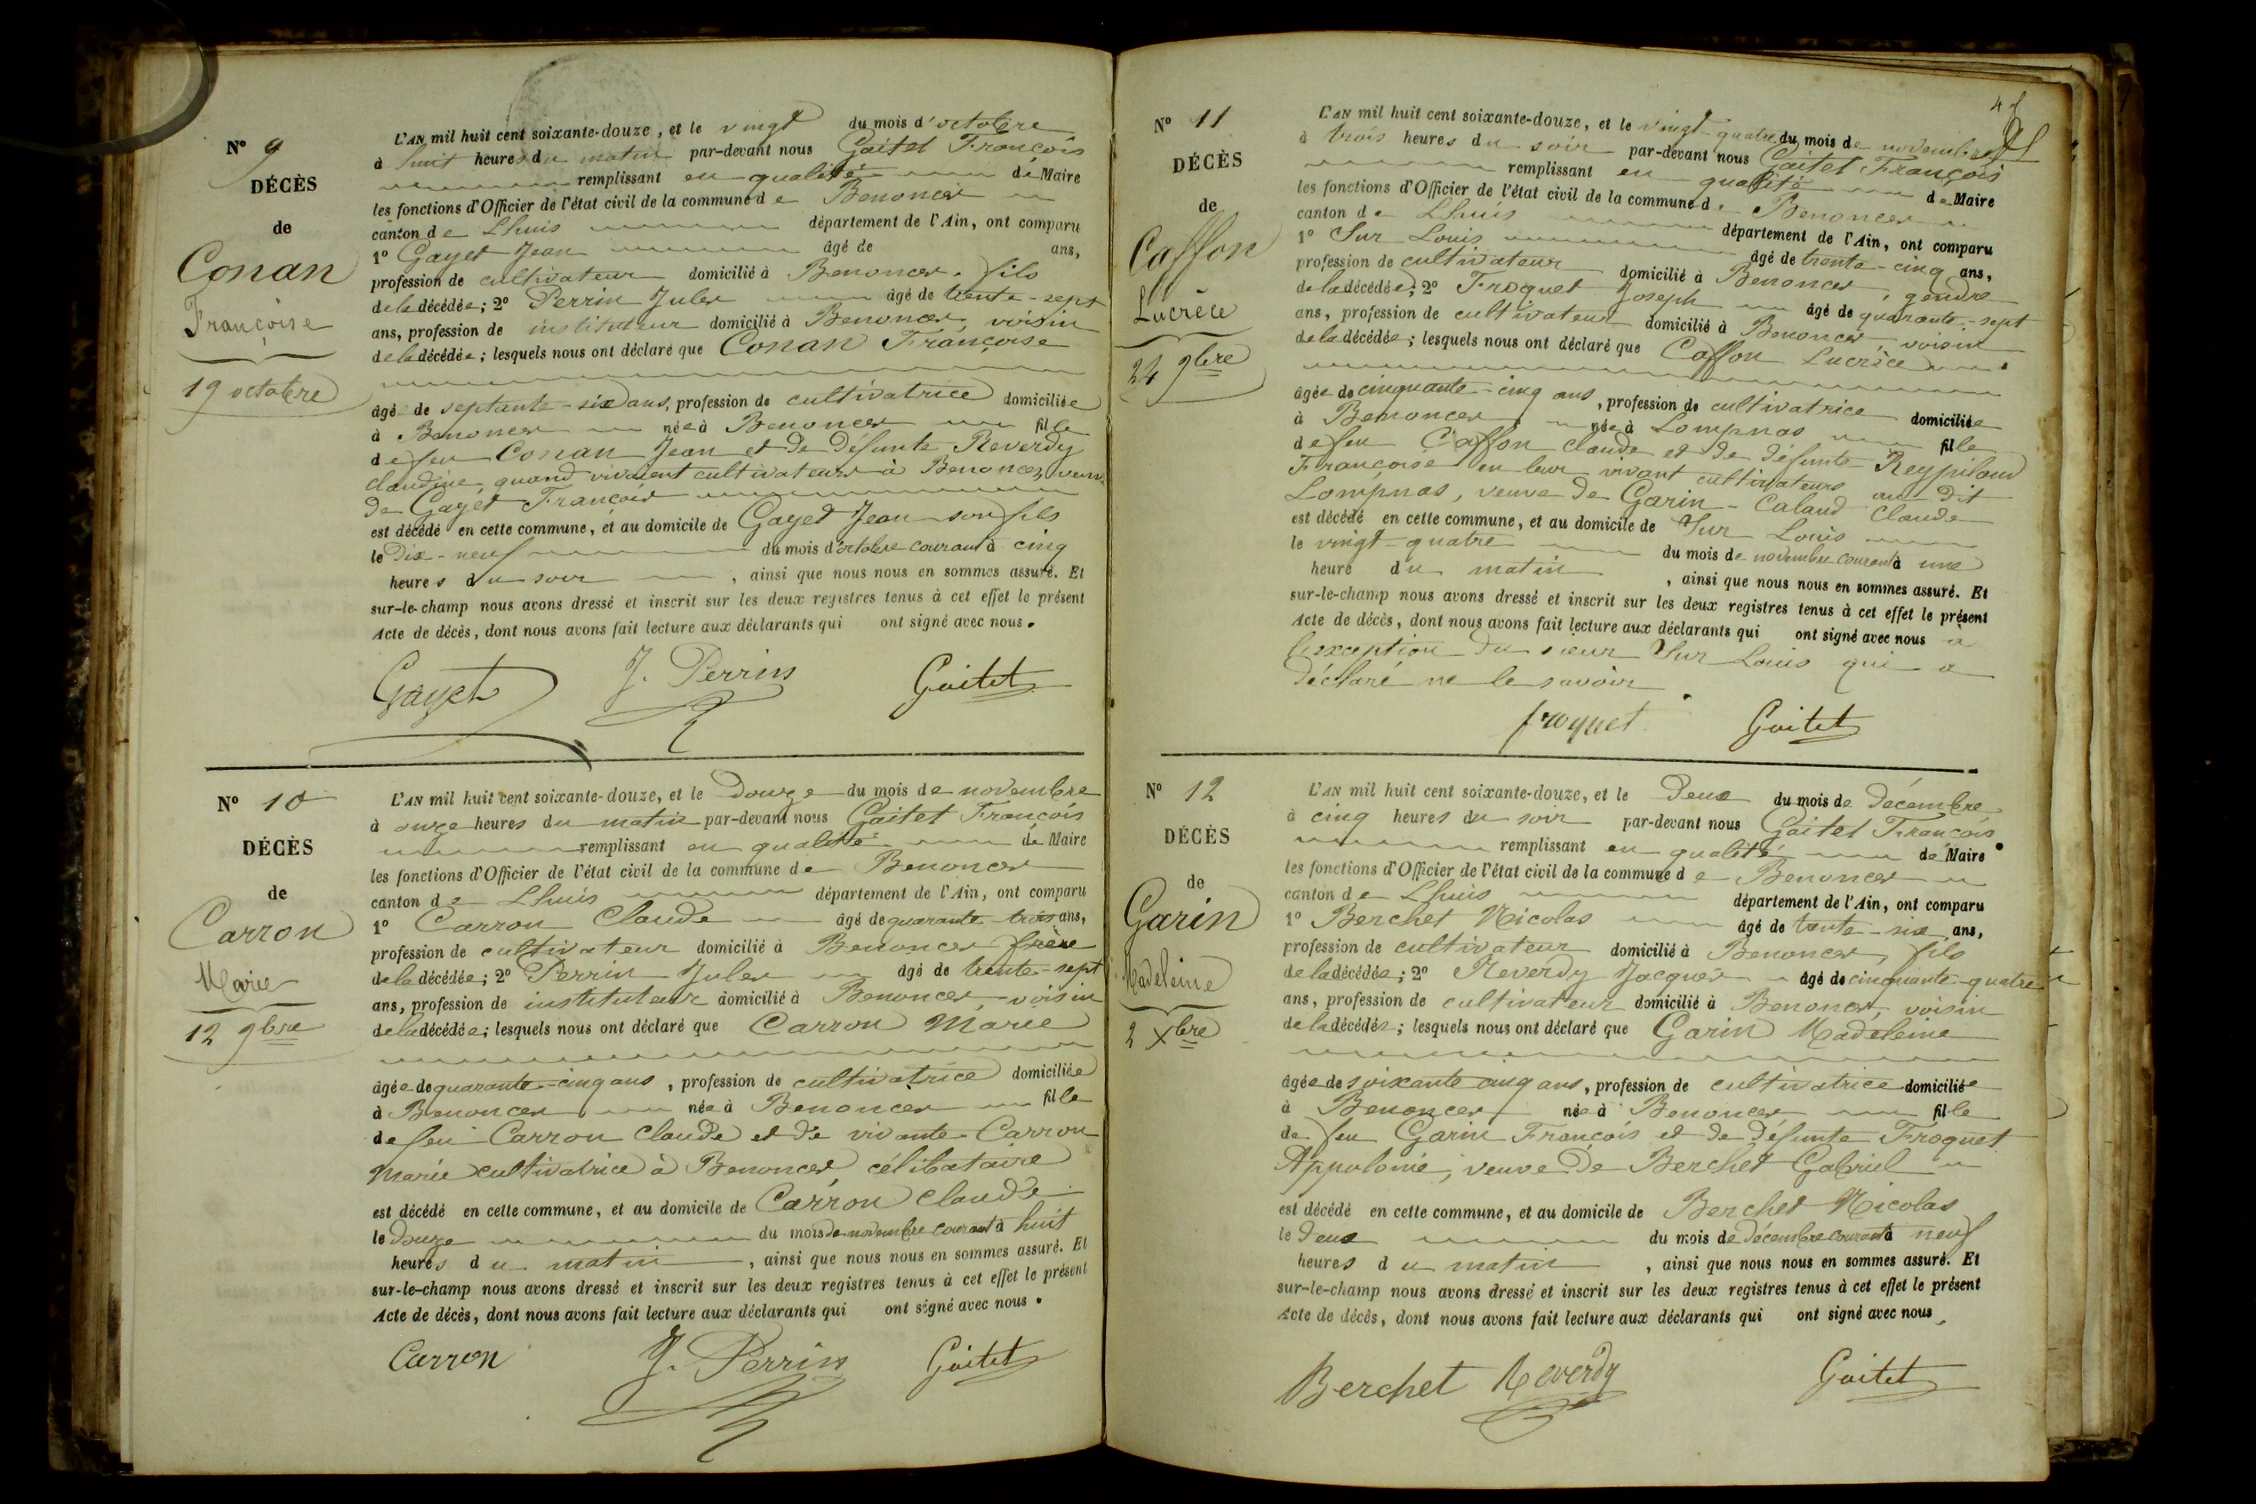 N° 9
DÉCÈS
de
Conan
Françoise
19 octobre
L'AN mil huit cent soixante-douze, et le vingt du mois d'octobre
à huit heures du matin par-devant nous Gaitet François
remplissant en qualité de Maire
les fonctions d'Officier de l'état civil de la commune de Benonces
canton de Lhuis département de l'Ain, ont comparu
1° Gayet Jean âgé de ans,
profession de cultivateur domicilié à Benonces, fils
de la décédée; 2° Perrin Jules âgé de trente-sept
ans, profession de instituteur domicilié à Benonces, voisin
de la décédée; lesquels nous ont déclaré que Conan Françoise
âgé de septante-six ans, profession de cultivatrice domiciliée
à Benonces née à Benonces fille
de feu Conan Jean et de défunte Reverdy
claudine, quand vivaient cultivateurs à Benonces, veuve
de Gayet François
est décédé en cette commune, et au domicile de Gayet Jean son fils
le Dix-neuf du mois d'octobre courant à cinq
heures du soir, ainsi que nous nous en sommes assuré. Et
sur-le-champ nous avons dressé et inscrit sur les deux registres tenus à cet effet le présent
Acte de décès, dont nous avons fait lecture aux déclarants qui ont signé avec nous.
Gayet J. Perrin Gaitet
N° 10
DÉCÈS
de
Carron
Marie
12 9bre
L'AN mil huit cent soixante-douze, et le Douze du mois de novembre
à onze heures du matin par-devant nous Gaitet François
remplissant en qualité de Maire
les fonctions d'Officier de l'état civil de la commune de Benonces
canton de Lhuis département de l'Ain, ont comparu
1° Carron Claude âgé de quarante-trois ans,
profession de cultivateur domicilié à Benonces frère
de la décédée; 2° Perrin Jules âgé de trente-sept
ans, profession de instituteur domicilié à Benonces, voisin
de la décédée; lesquels nous ont déclaré que Carron Marie
âgée de quarante-cinq ans, profession de cultivatrice domiciliée
à Benonces née à Benonces fille
de feu Carron Claude et de vivante Carron
Marie cultivatrice à Benonces célibataire
est décédé en cette commune, et au domicile de Carron Claude
le douze du mois de novembre courant à huit
heures du matin, ainsi que nous nous en sommes assuré. Et
sur-le-champ nous avons dressé et inscrit sur les deux registres tenus à cet effet le présent
Acte de décès, dont nous avons fait lecture aux déclarants qui ont signé avec nous.
Carron J. Perrin Gaitet
N° 11
DÉCÈS
de
Caffon
Lucrèce
24 9bre
L'AN mil huit cent soixante-douze, et le vingt-quatre du mois de novembre
à trois heures du soir par-devant nous Gaitet François
remplissant en qualité de Maire
les fonctions d'Officier de l'état civil de la commune de Benonces
canton de Lhuis département de l'Ain, ont comparu
1° Sur Louis âgé de trente-cinq ans,
profession de cultivateur domicilié à Benonces, gendre
de la décédée; 2° Froquet Joseph âgé de quarante-sept
ans, profession de cultivateur domicilié à Benonces, voisin
de la décédée; lesquels nous ont déclaré que Caffon Lucrèce
âgée de cinquante-cinq ans, profession de cultivatrice domiciliée
à Benonces née à Lompnas fille
de feu Caffon claude et de défunte Reypiloud
Françoise en leur vivant cultivateurs au dit
Lompnas, veuve de Garin-Calaud Claude
est décédé en cette commune, et au domicile de Sur Louis
le vingt-quatre du mois de novembre courant à une
heure du matin, ainsi que nous nous en sommes assuré. Et
sur-le-champ nous avons dressé et inscrit sur les deux registres tenus à cet effet le présent
Acte de décès, dont nous avons fait lecture aux déclarants qui ont signé avec nous à
l'exception du sieur Sur Louis qui a
déclaré ne le savoir.
froquet Gaitet
N° 12
DÉCÈS
de
Garin
Madeleine
2 Xbre
L'AN mil huit cent soixante-douze, et le Deux du mois de Décembre
à cinq heures du soir par-devant nous Gaitet François
remplissant en qualité de Maire
les fonctions d'Officier de l'état civil de la commune de Benonces
canton de Lhuis département de l'Ain, ont comparu
1° Berchet Nicolas âgé de trente-six ans,
profession de cultivateur domicilié à Benonces, fils
de la décédée; 2° Reverdy Jacques âgé de cinquante-quatre
ans, profession de cultivateur domicilié à Benonces, voisin
de la décédée; lesquels nous ont déclaré que Garin Madeleine
âgée de soixante cinq ans, profession de cultivatrice domiciliée
à Benonces née à Benonces fille
de feu Garin François et de défunte Froquet
Appolonie, veuve de Berchet Gabriel
est décédé en cette commune, et au domicile de Berchet Nicolas
le Deux du mois de Décembre courant à neuf
heures du matin, ainsi que nous nous en sommes assuré. Et
sur-le-champ nous avons dressé et inscrit sur les deux registres tenus à cet effet le présent
Acte de décès, dont nous avons fait lecture aux déclarants qui ont signé avec nous.
Berchet Reverdy Gaitet